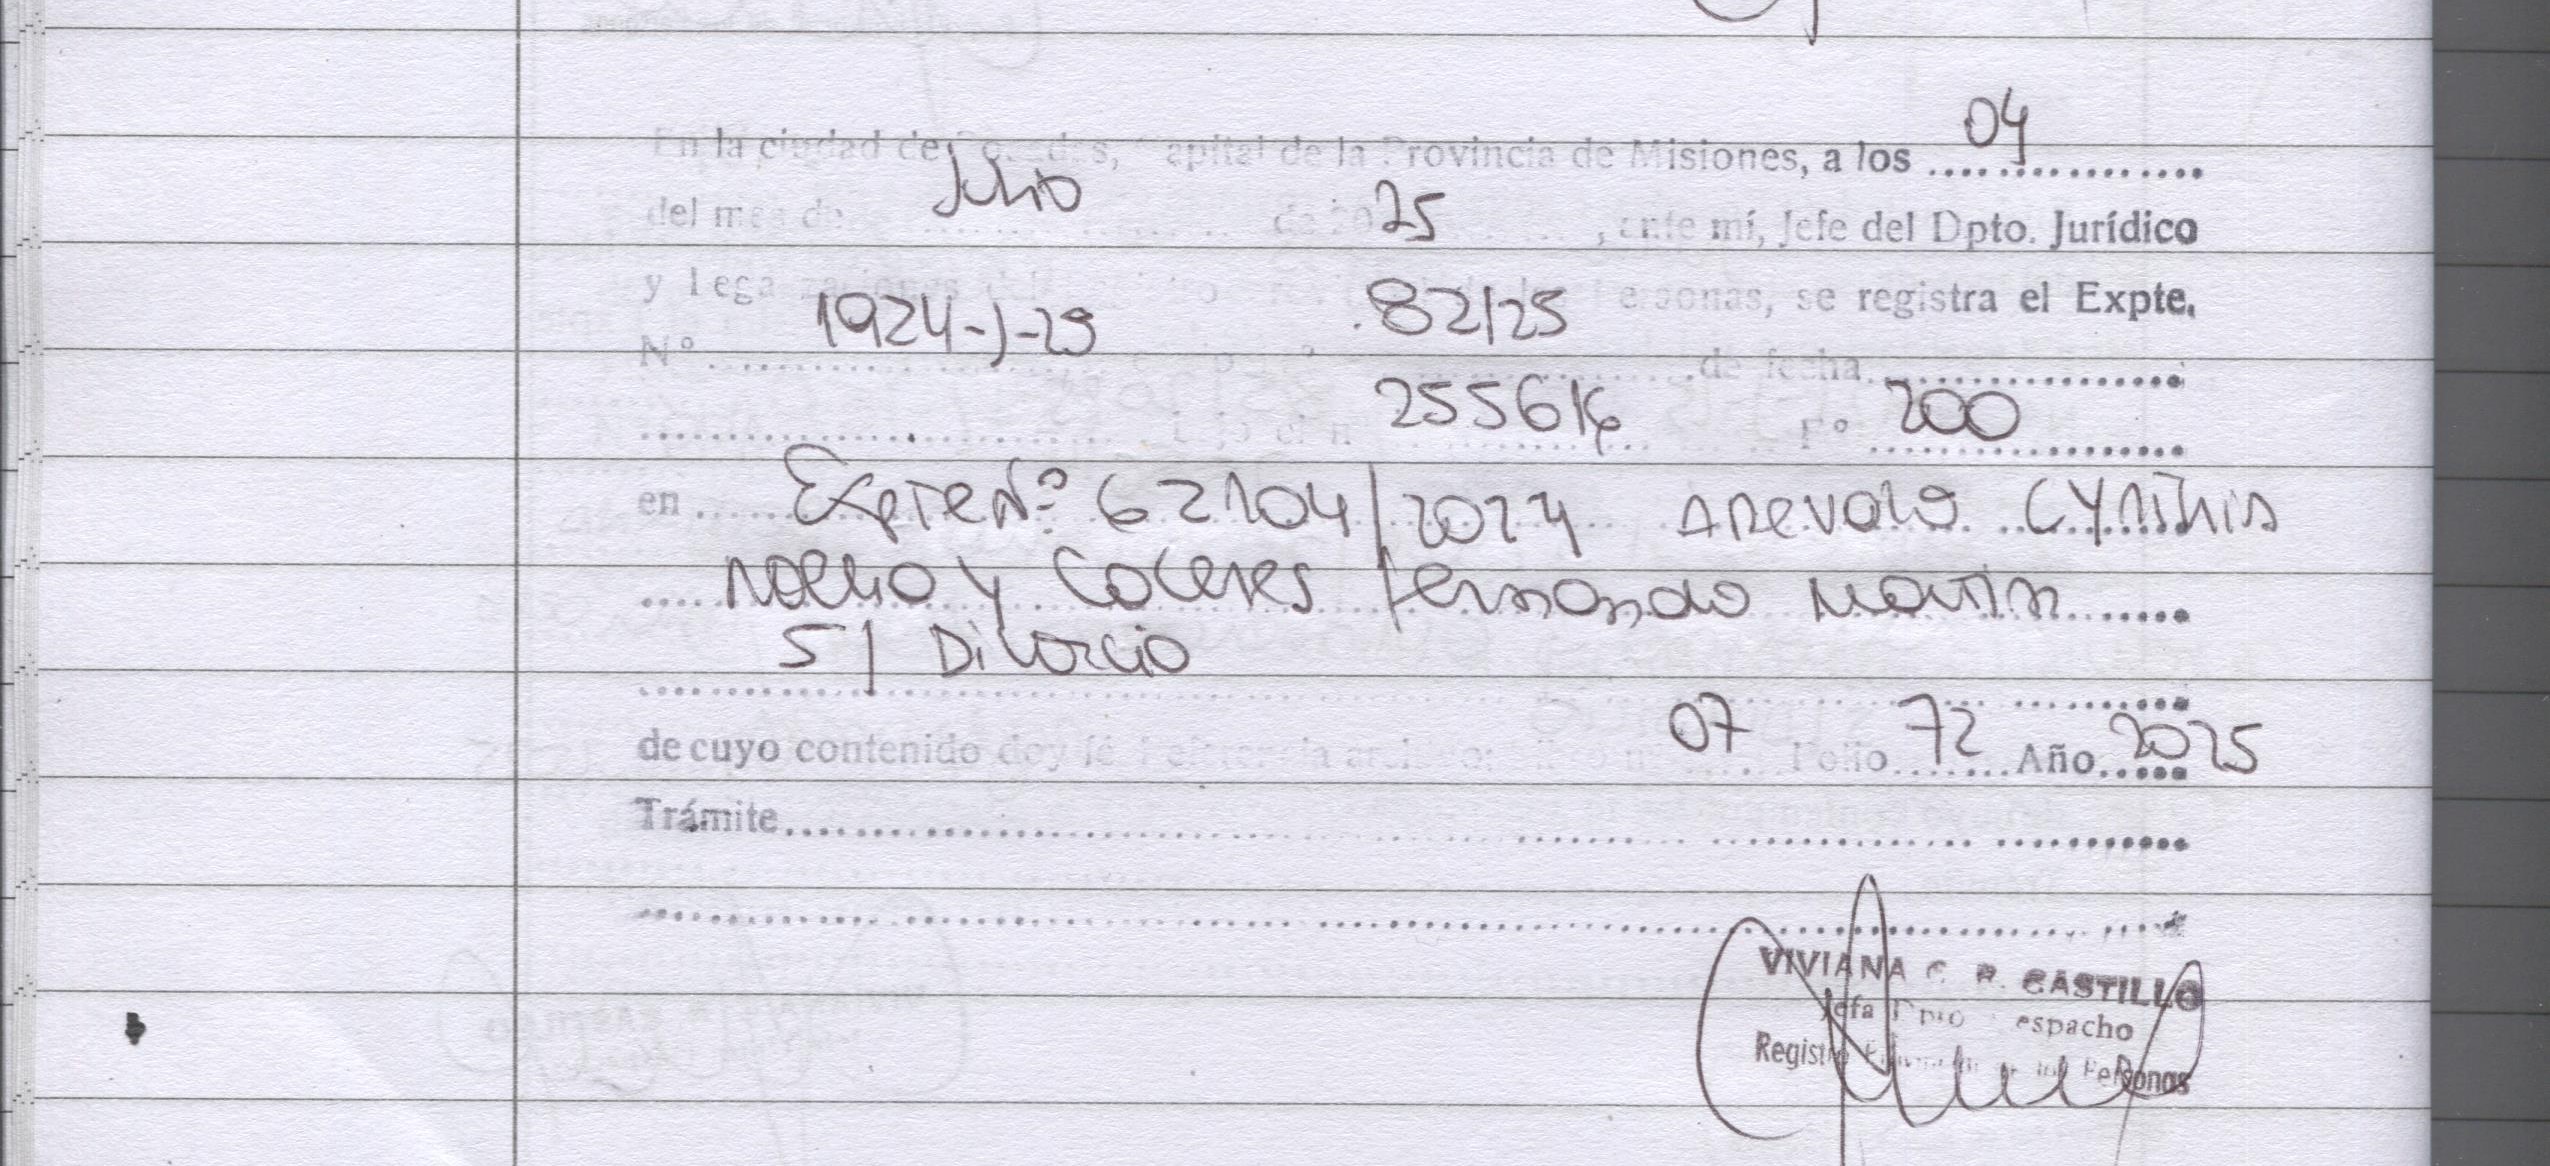 En la ciudad de Posadas, Capital de la Provincia de Misiones, a los 04
del mes de Julio de 2025, ante mí, Jefe del Dpto. Jurídico
y Legalizaciones Personas, se registra el Expte.
Nº 1924-J-25 82/25 de fecha
bajo el nº 255616 Fº 200
en Expte Nº 62104/2024 Arevalo Cynthia
Noelia y Caceres Fernando Martin
S/ Divorcio
de cuyo contenido doy fé 07 Folio 72 Año 2025
Trámite
VIVIANA C. R. CASTILLO
Jefa Dpto Despacho
Registro Personas